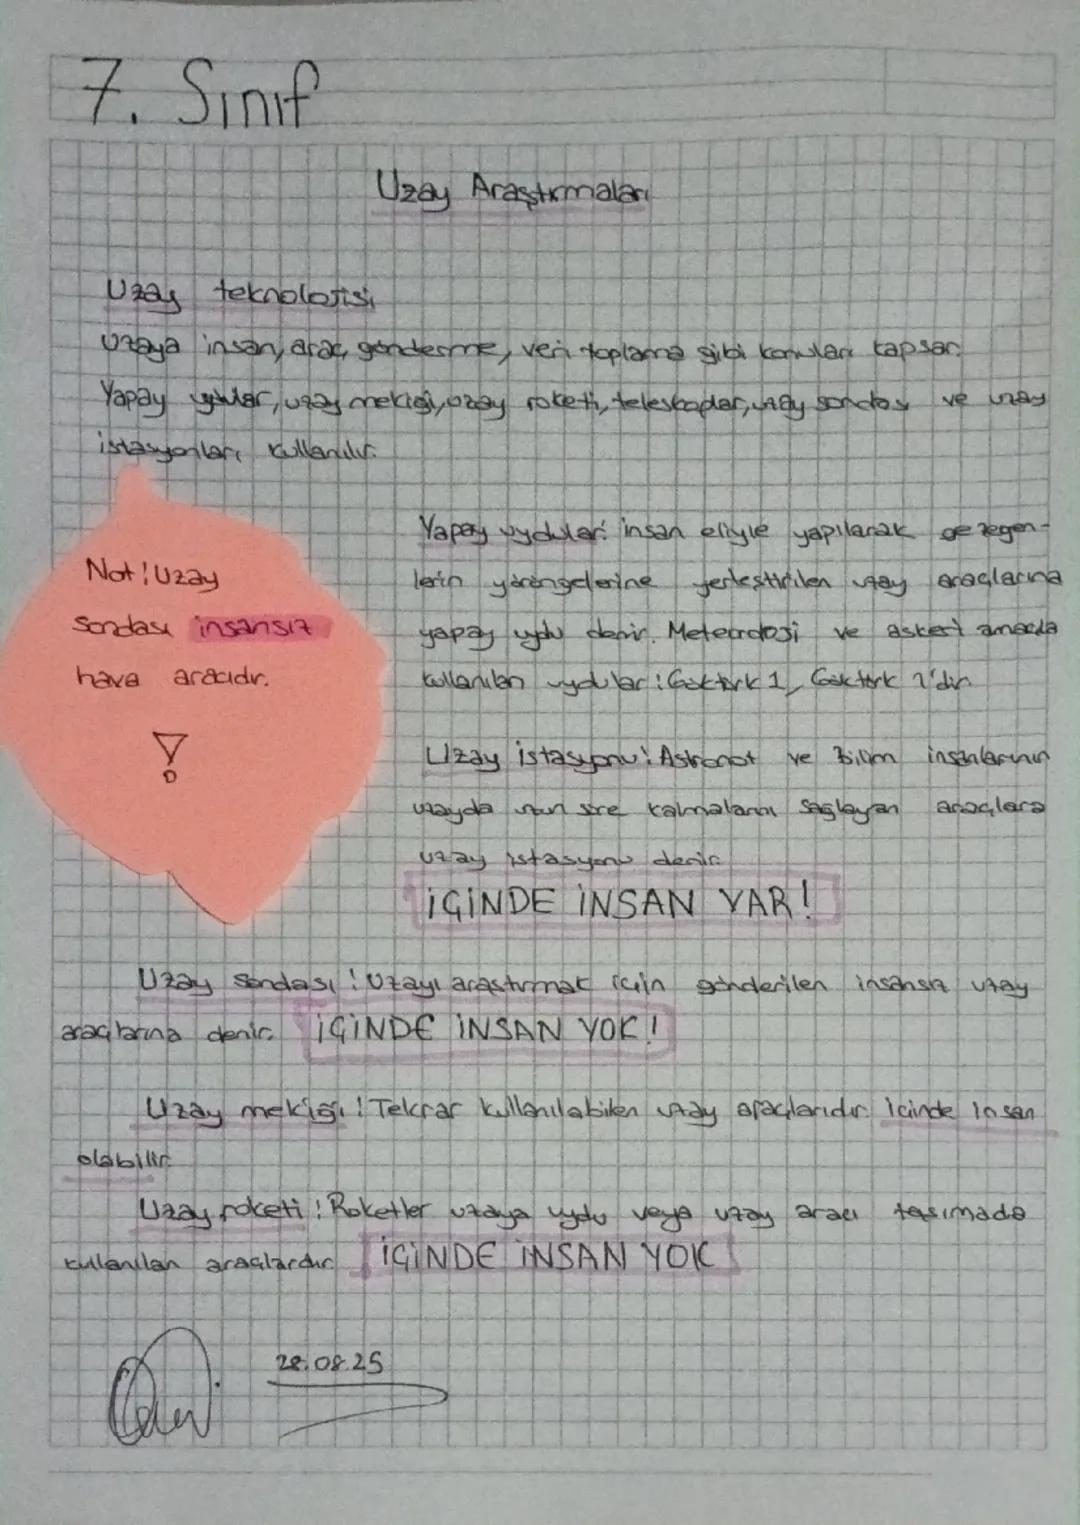 7. Sınıf
Uzay Araştırmaları
Uzay teknolojisi
Uzaya insan, araç gönderme, veri toplama gibi konuları kapsar.
Yapay uydular, uzay mekiği, uzay roketi, teleskoplar, uzay sondası ve uzay
istasyonları kullanılır.
Not! Uzay
Sondası insansız
hava aracıdır.
Yapay uydular: insan eliyle yapılarak gezegen-
lerin yörüngelerine yerleştirilen uzay araçlarına
yapay uydu denir. Meteoroloji ve askeri amaçla
kullanılan uydular: Göktürk 1, Göktürk 2'dir.
Uzay istasyonu: Astronot ve Bilim insanlarının
uzayda uzun süre kalmalarını sağlayan araçlara
uzay istasyonu denir.
İÇİNDE İNSAN VAR!
Uzay Sondası: Uzayı araştırmak için gönderilen insansız uzay
araçlarına denir. İÇİNDE İNSAN YOK!
Uzay mekiği: Tekrar kullanılabilen uzay araçlarıdır. İçinde insan
olabilir.
Uzay roketi: Roketler uzaya uydu veya uzay aracı taşımada
kullanılan araçlardır. İÇİNDE İNSAN YOK
28.08.25